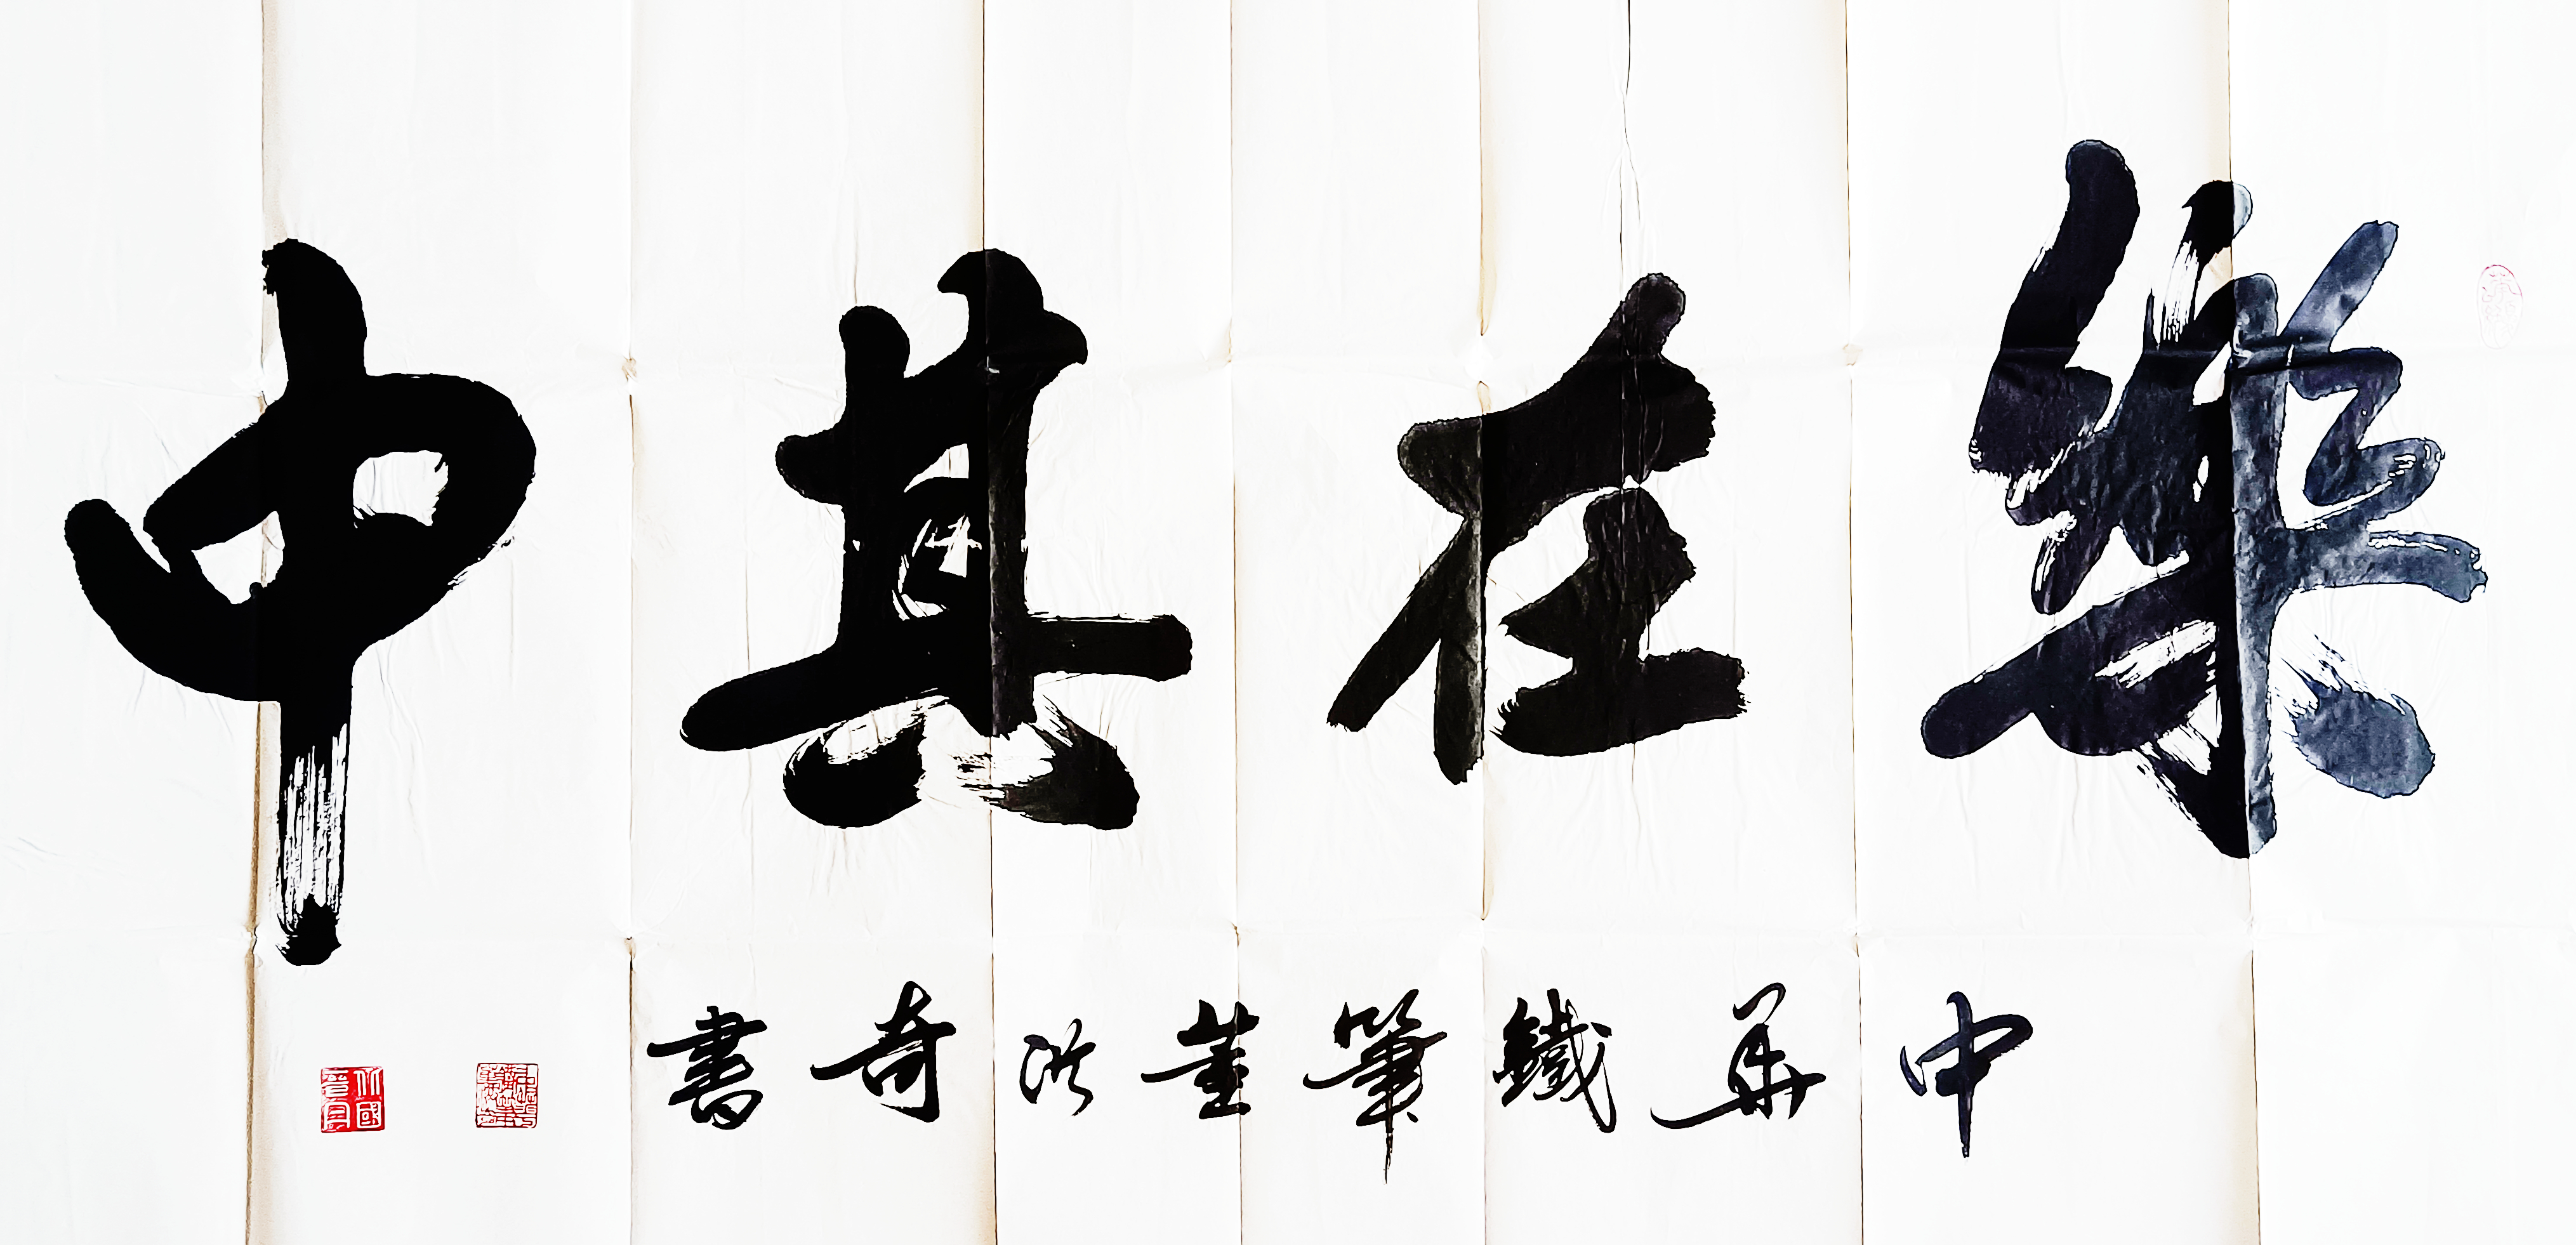 樂在其中
中華鐵筆董洪奇書